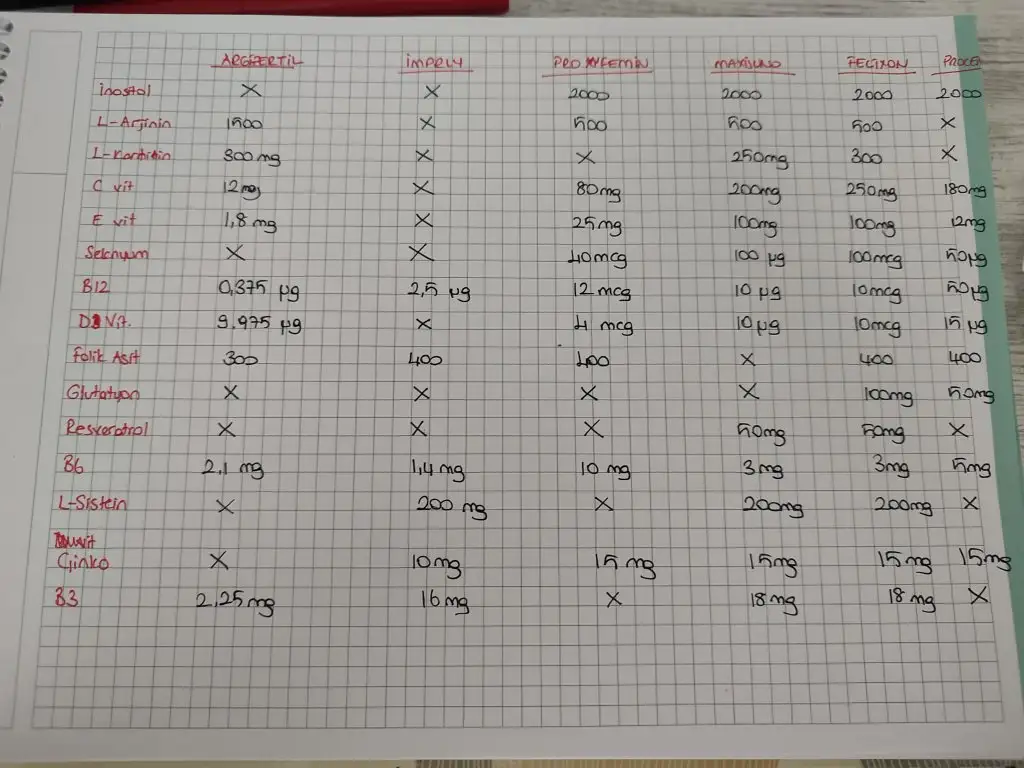 ARGIFERTIL IMPRLY PRO MYFEMIN FELIXON
inostol X X 2000 2000 2000 2000
L-Arjinin 1500 X 500 500 500 X
L-Karnitin 300mg X X 250mg 300 X
C vit 12mg X 80mg 200mg 250mg 180mg
E vit 1,8mg X 25mg 100mg 100mg 12mg
Selenyum X X 40mcg 100 µg 100mcg 50µg
B12 0,375 µg 2,5 µg 12 mcg 10 µg 10mcg 50µg
D Vit. 9,975 µg X 4 mcg 10µg 10mcg 15 µg
Folik Asit 300 400 400 X 400 400
Glutatyon X X X X 100mg 50mg
Resveratrol X X X 50mg 50mg X
B6 2,1 mg 1,4mg 10 mg 3mg 3mg 5mg
L-Sistein X 200 mg X 200mg 200mg X
Ginko X 10mg 15mg 15mg 15mg 15mg
B3 2,25mg 16mg X 18mg 18mg X